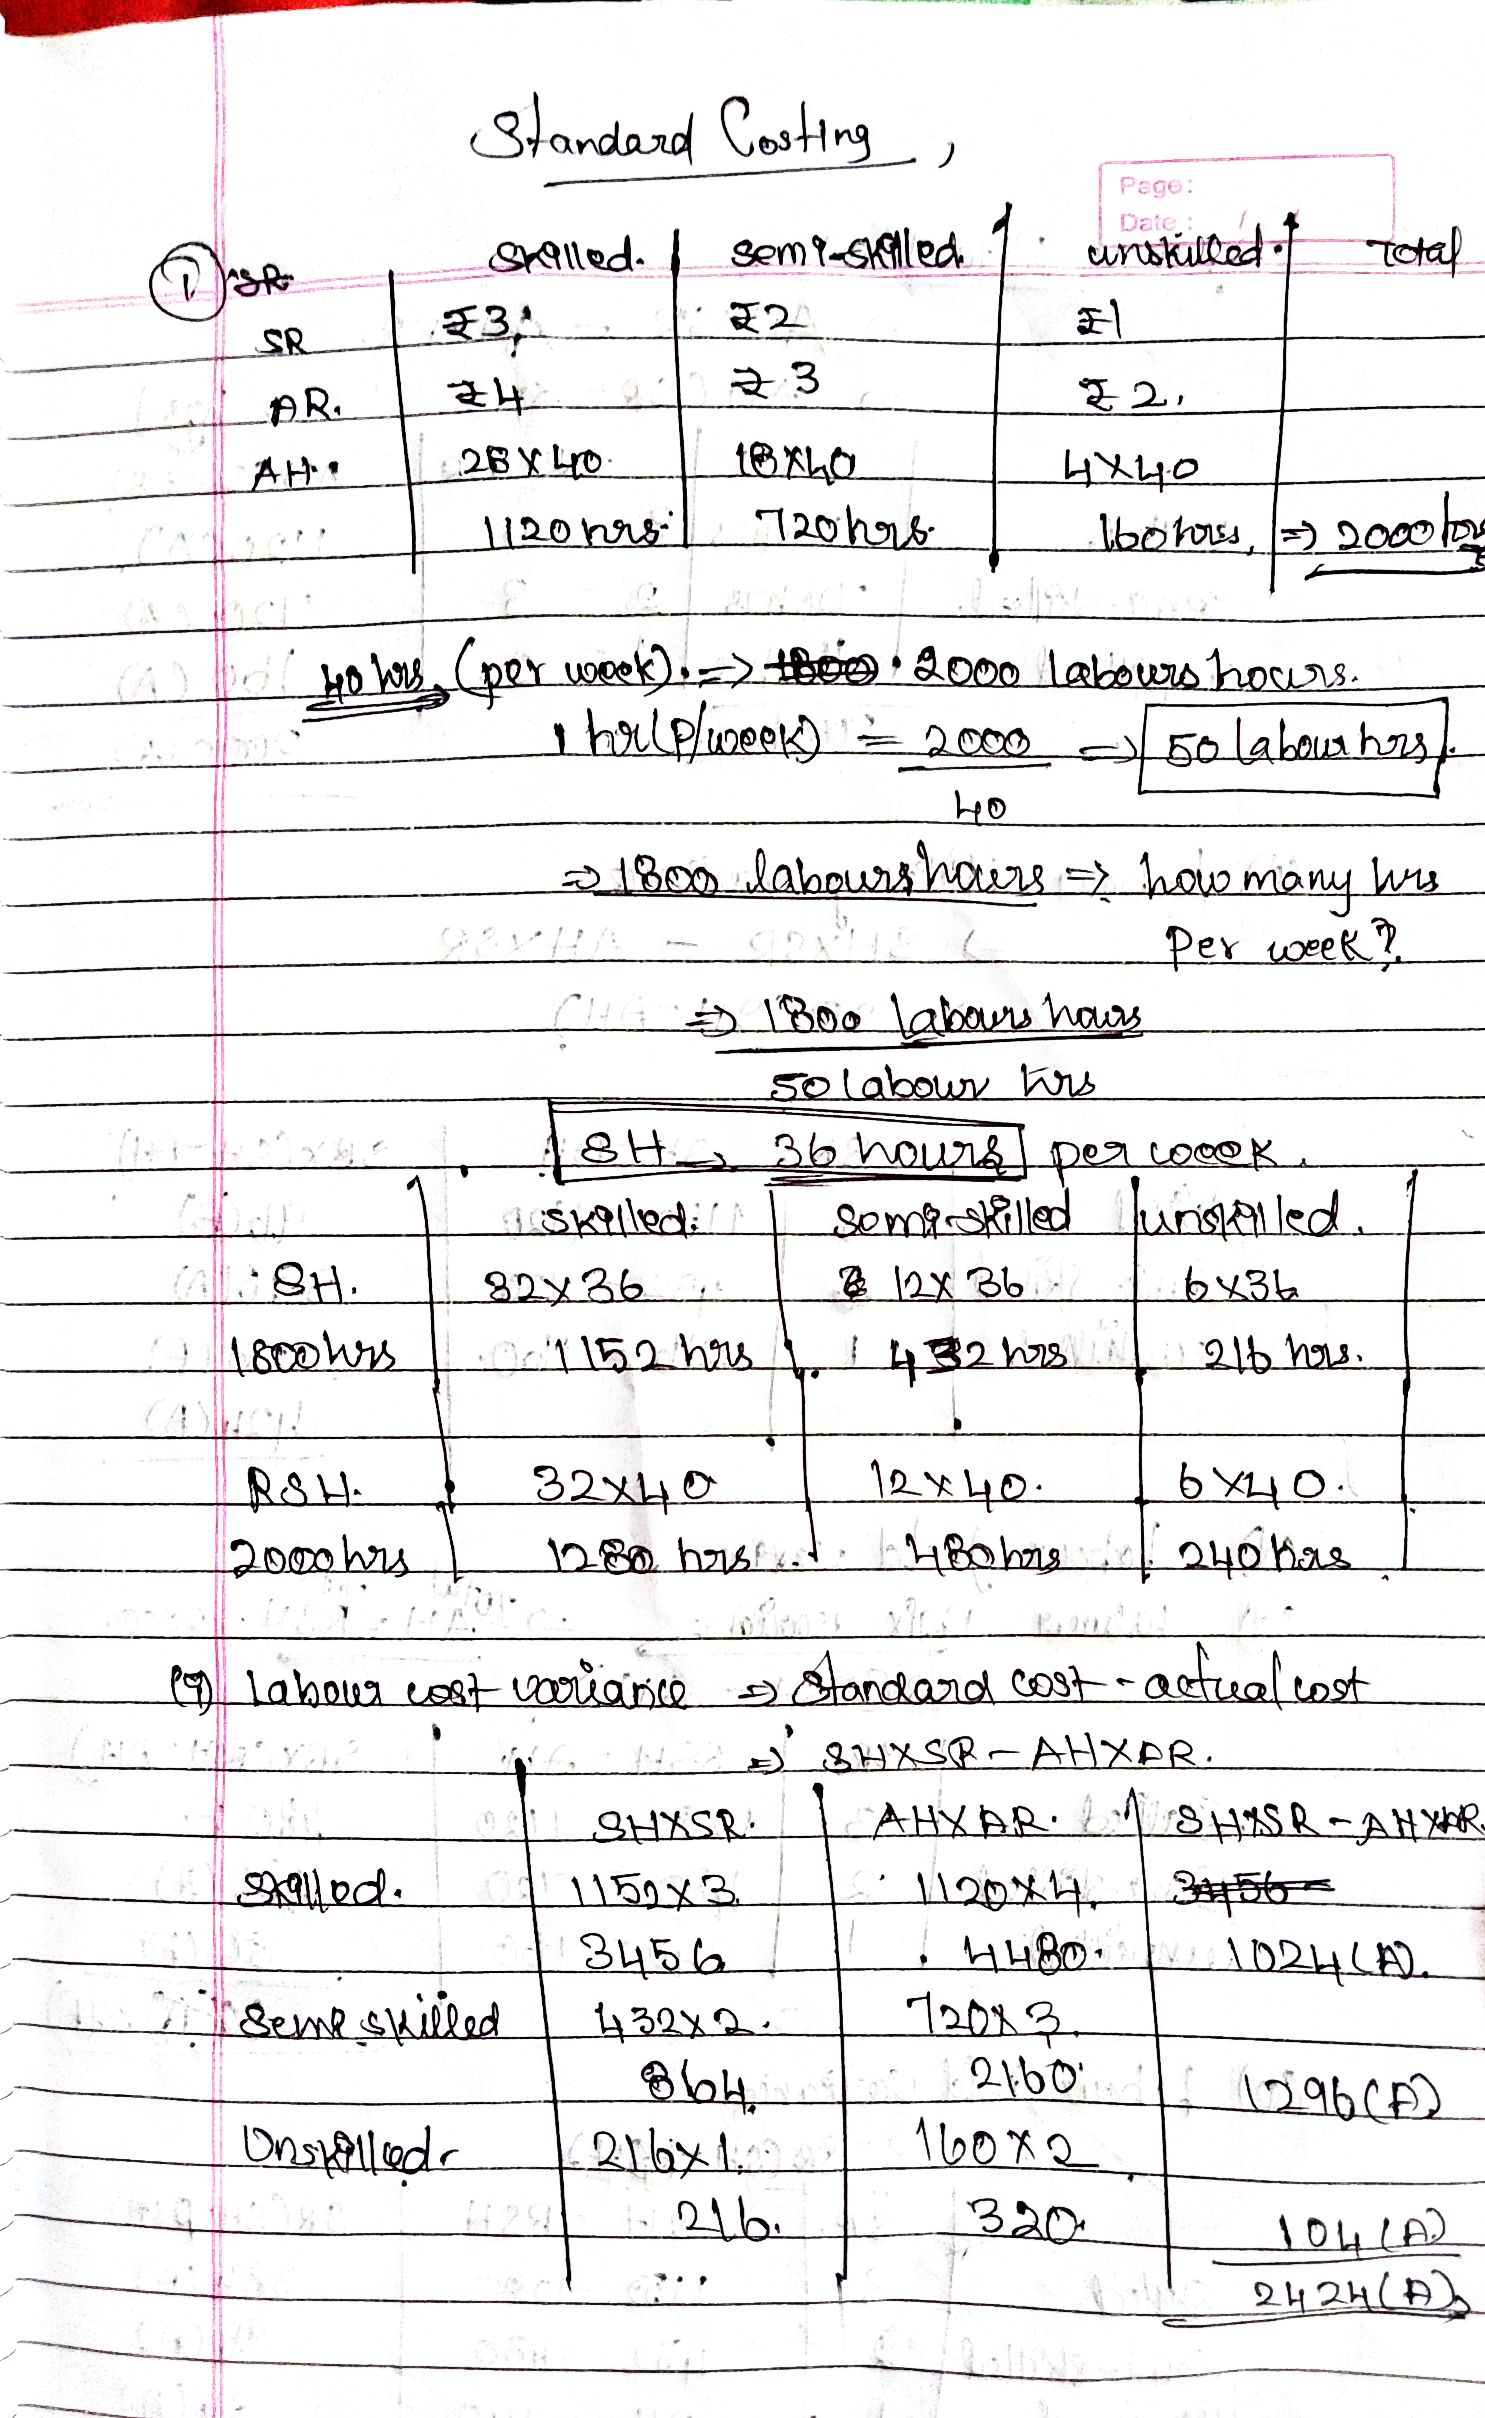 Standard Costing,
Page:
Date: / /
① SR skilled. semi-skilled unskilled. Total
SR ₹3, ₹2 ₹1
AR. ₹4 ₹3 ₹2.
AH. 28×40 18×40 4×40
1120 hrs. 720 hrs. 160 hrs, ⇒ 2000 hrs
40 hrs (per week). ⇒ 1800 . 2000 labours hours.
1 hr (p/week) = 2000 ⇒ 50 labour hrs.
40
⇒ 1800 labours hours ⇒ how many hrs
per week?
⇒ 1800 labours hours
50 labour hrs
SH → 36 hours per week.
skilled. semi-skilled unskilled.
SH. 32×36 12×36 6×36
1800 hrs 1152 hrs 432 hrs 216 hrs.
RSH. 32×40 12×40. 6×40.
2000 hrs 1280 hrs 480 hrs 240 hrs
(i) labour cost variance ⇒ Standard cost - actual cost
⇒ SH×SR - AH×AR.
SH×SR. AH×AR. SH×SR - AH×AR.
Skilled. 1152×3. 1120×4. 3456
3456 4480. 1024 (A).
Semi skilled 432×2. 720×3.
864. 2160 1296 (A)
Unskilled. 216×1. 160×2
216. 320. 104 (A)
... 2424 (A)